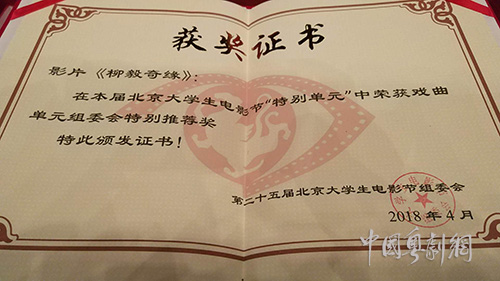 获奖证书
影片《柳毅奇缘》:
在本届北京大学生电影节“特别单元”中荣获戏曲
单元组委会特别推荐奖
特此颁发证书!
第二十五届北京大学生电影节组委会
2018年4月
中国粤剧網